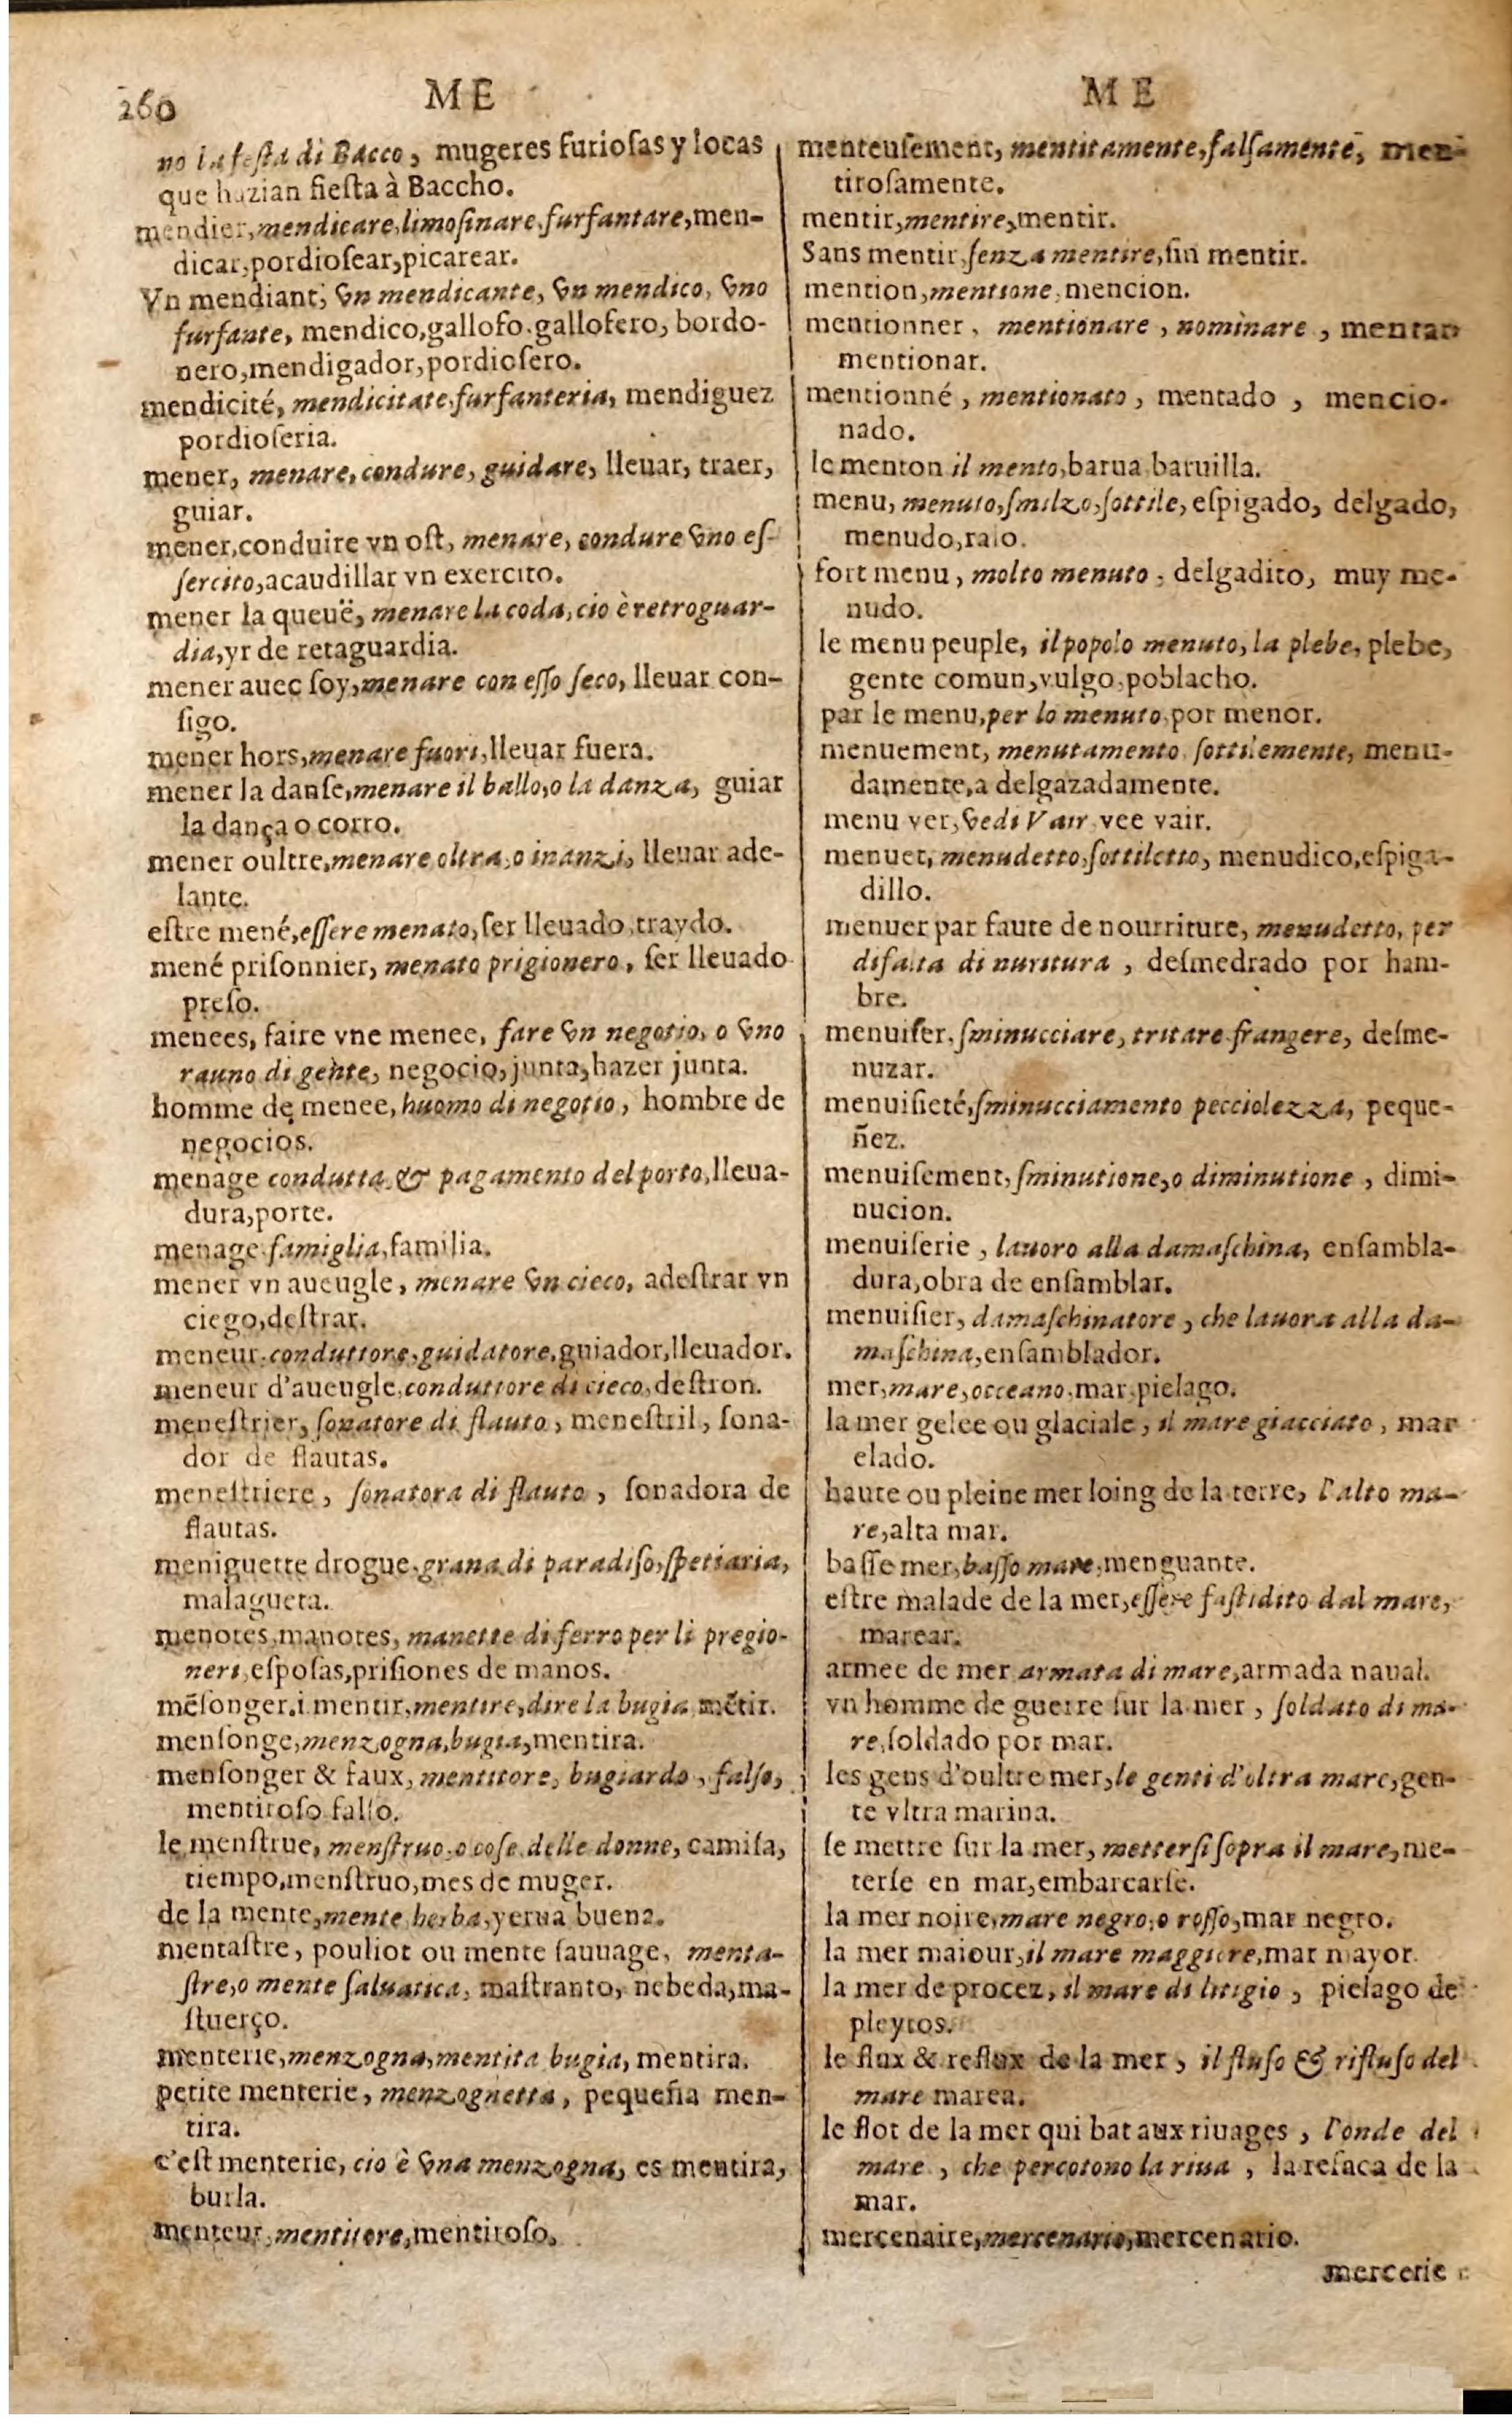 260
ME
ME
no la feſta di Bacco, mugeres furioſas y locas
que hazian fieſta à Baccho.
mendier, mendicare, limoſinare, furfantare, men-
dicar, pordioſear, picarear.
Vn mendiant, vn mendicante, vn mendico, vno
furfante, mendico, gallofo. gallofero, bordo-
nero, mendigador, pordioſero.
mendicité, mendicitate, furfanteria, mendiguez
pordioſeria.
mener, menare, condure, guidare, lleuar, traer,
guiar.
mener, conduire vn oſt, menare, condure vno eſ-
ſercito, acaudillar vn exercito.
mener la queuë, menare la coda, cio è retroguar-
dia, yr de retaguardia.
mener auec ſoy, menare con eſſo ſeco, lleuar con-
ſigo.
mener hors, menare fuori, lleuar fuera.
mener la danſe, menare il ballo, o la danza, guiar
la dança o corro.
mener oultre, menare oltra, o inanzi, lleuar ade-
lante.
eſtre mené, eſſere menato, ſer lleuado, traydo.
mené priſonnier, menato prigionero, ſer lleuado
preſo.
menees, faire vne menee, fare vn negotio, o vno
rauno di gente, negocio, junta, hazer junta.
homme de menee, huomo di negotio, hombre de
negocios.
menage condutta, & pagamento del porto, lleua-
dura, porte.
menage famiglia, familia.
mener vn aueugle, menare vn cieco, adeſtrar vn
ciego, deſtrar.
meneur, conduttore, guidatore, guiador, lleuador.
meneur d'aueugle, conduttore di cieco, deſtron.
meneſtrier, ſonatore di flauto, meneſtril, ſona-
dor de flautas.
meneſtriere, ſonatora di flauto, ſonadora de
flautas.
meniguette drogue, grana di paradiſo, ſpetiaria,
malagueta.
menotes, manotes, manette di ferro per li pregio-
neri, eſpoſas, priſiones de manos.
mẽſonger. i. mentir, mentire, dire la bugia mẽtir.
menſonge, menzogna, bugia, mentira.
menſonger & faux, mentitore, bugiardo, falſo,
mentiroſo falſo.
le menſtrue, menſtruo, o coſe delle donne, camiſa,
tiempo, menſtruo, mes de muger.
de la mente, mente herba, yerua buena.
mentaſtre, pouliot ou mente ſauuage, menta-
ſtre, o mente ſaluatica, maſtranto, nebeda, ma-
ſtuerço.
menterie, menzogna, mentita bugia, mentira.
petite menterie, menzognetta, pequeña men-
tira.
c'eſt menterie, cio è vna menzogna, es mentira,
burla.
menteur, mentitore, mentiroſo.
menteuſement, mentitamente, falſamente, men-
tiroſamente.
mentir, mentire, mentir.
Sans mentir, ſenza mentire, ſin mentir.
mention, mentione, mencion.
mentionner, mentionare, nominare, mentar
mentionar.
mentionné, mentionato, mentado, mencio-
nado.
le menton il mento, barua baruilla.
menu, menuto, ſmilzo, ſottile, eſpigado, delgado,
menudo, ralo.
fort menu, molto menuto, delgadito, muy me-
nudo.
le menu peuple, il popolo menuto, la plebe, plebe,
gente comun, vulgo, poblacho.
par le menu, per lo menuto, por menor.
menuement, menutamento, ſottilemente, menu-
damente, a delgazadamente.
menu ver, vedi Vair vee vair.
menuet, menudetto, ſottiletto, menudico, eſpiga-
dillo.
menuer par faute de nourriture, menudetto, per
difalta di nuritura, deſmedrado por ham-
bre.
menuiſer, ſminucciare, tritare frangere, deſme-
nuzar.
menuiſieté, ſminucciamento pecciolezza, peque-
ñez.
menuiſement, ſminutione, o diminutione, dimi-
nucion.
menuiſerie, lauoro alla damaſchina, enſambla-
dura, obra de enſamblar.
menuiſier, damaſchinatore, che lauora alla da-
maſchina, enſamblador.
mer, mare, occeano, mar, pielago.
la mer gelee ou glaciale, il mare giacciato, mar
elado.
haute ou pleine mer loing de la terre, l'alto ma-
re, alta mar.
baſſe mer, baſſo mare, menguante.
eſtre malade de la mer, eſſere faſtidito dal mare,
marear.
armee de mer armata di mare, armada naual.
vn homme de guerre ſur la mer, ſoldato di ma-
re, ſoldado por mar.
les gens d'oultre mer, le genti d'oltra mare, gen-
te vltra marina.
ſe mettre ſur la mer, metterſi ſopra il mare, me-
terſe en mar, embarcarſe.
la mer noire, mare negro, o roſſo, mar negro.
la mer maiour, il mare maggiore, mar mayor.
la mer de procez, il mare di litigio, pielago de
pleytos.
le flux & reflux de la mer, il fluſo & rifluſo del
mare marea.
le flot de la mer qui bat aux riuages, l'onde del
mare, che percotono la riua, la reſaca de la
mar.
mercenaire, mercenario, mercenario.
mercerie